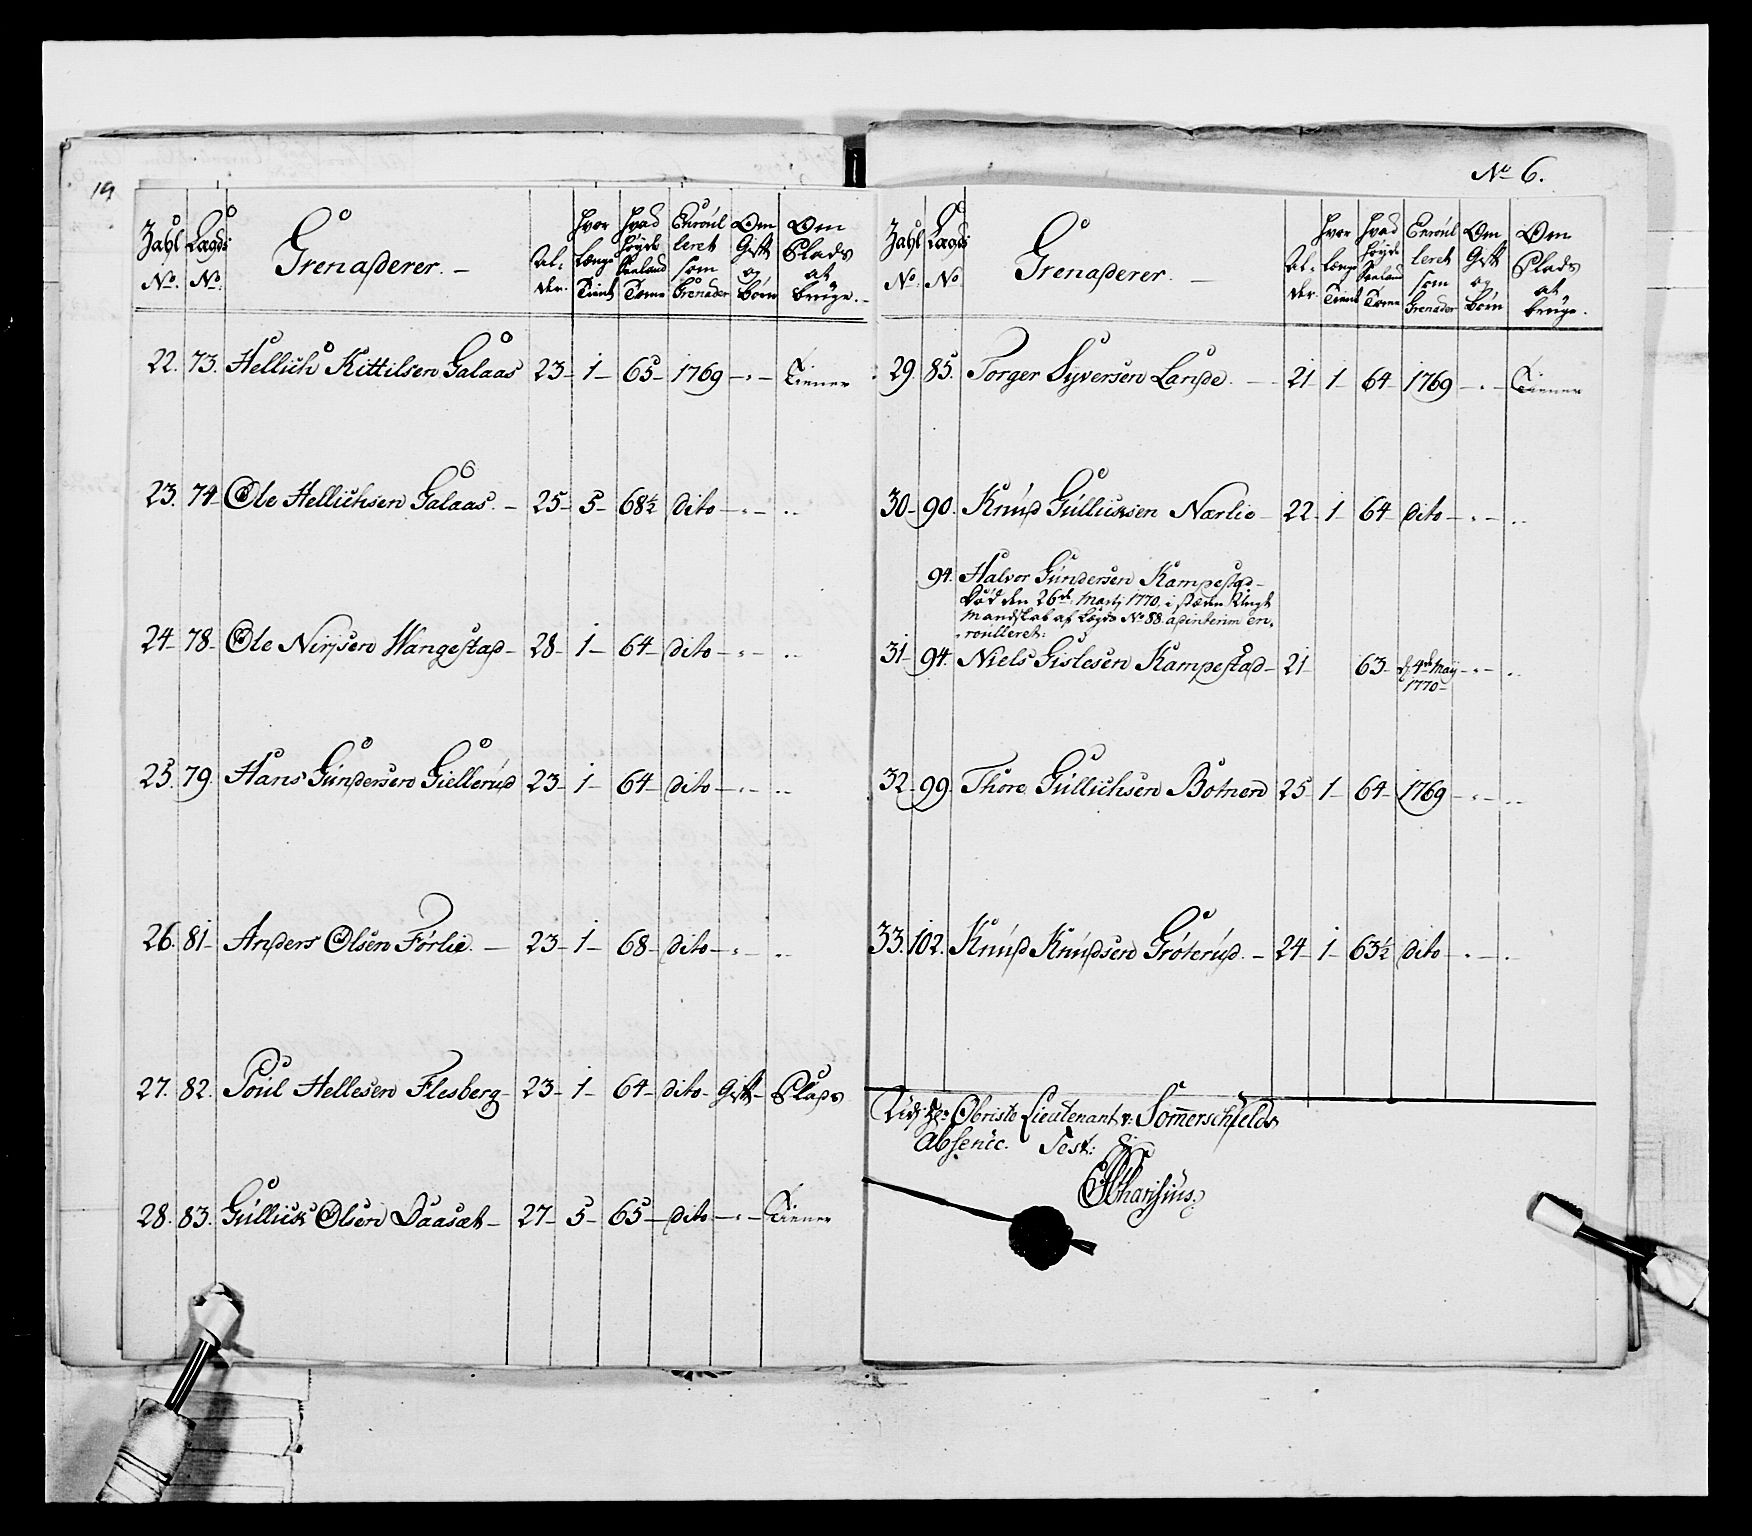 19
Zahl No. Lægds No. Grenaderer. Al-der. Hvor Længe Tient Hvad Høyde Siæland Tome Enroulleret som Grenader Om Gift og Børn Om Plads at bruge.
22. 73. Hellich Kittilsen Galaas 23 – 1 – 65 – 1769 – " – Tiener
23. 74 – Ole Hellichsen Galaas. – 25 – 5 – 68½ dito – " – "
24 – 78 – Ole Nirisen Wangestad – 28 – 1 – 64 – dito – " – "
25. 79. Hans Gundersen Giellerud 23 – 1 – 64 – dito – " – "
26. 81 – Anders Olsen Førlie. – 23 – 1 – 68 – dito – " "
27. 82. Poul Hellesen Flesberg – 23 – 1 – 64 – dito – Gift – Plads
28. 83. Gullick Olsen Daasæt – 27 – 5 – 65 – dito – " – Tiener
No 6.
Zahl No. Lægds No Grenaderer. – Al-der. Hvor Længe Tient Hvad Høyde Siæland Tome Enroulleret som Grenader Om Gift og Børn Om Plads at bruge.
29. 85. Torger Syversen Lande. – 21 1 – 64 – 1769 – " – Tiener
30 – 90. Knud Gullicksen Nærlie – 22 – 1 – 64 – dito – " – "
94. Halvor Gundersen Kampestad –
Død den 26de Martj 1770, i stæden Ungt
Mandskab af Lægds No 88. adinterim en-
roulleret:
31 – 94. Niels Gislesen Kampestad – 21 – 63 – d. 4de Maij – " – "
1770 –
32 – 99 Thore Gullichsen Botnen 25 – 1 – 64 – 1769 – " – "
33. 102. Knud Knudsen Grøterud. – 24 – 1 – 63½ dito – " – "
Obriste Lieutenant v: Somerschields
Absence. Test: